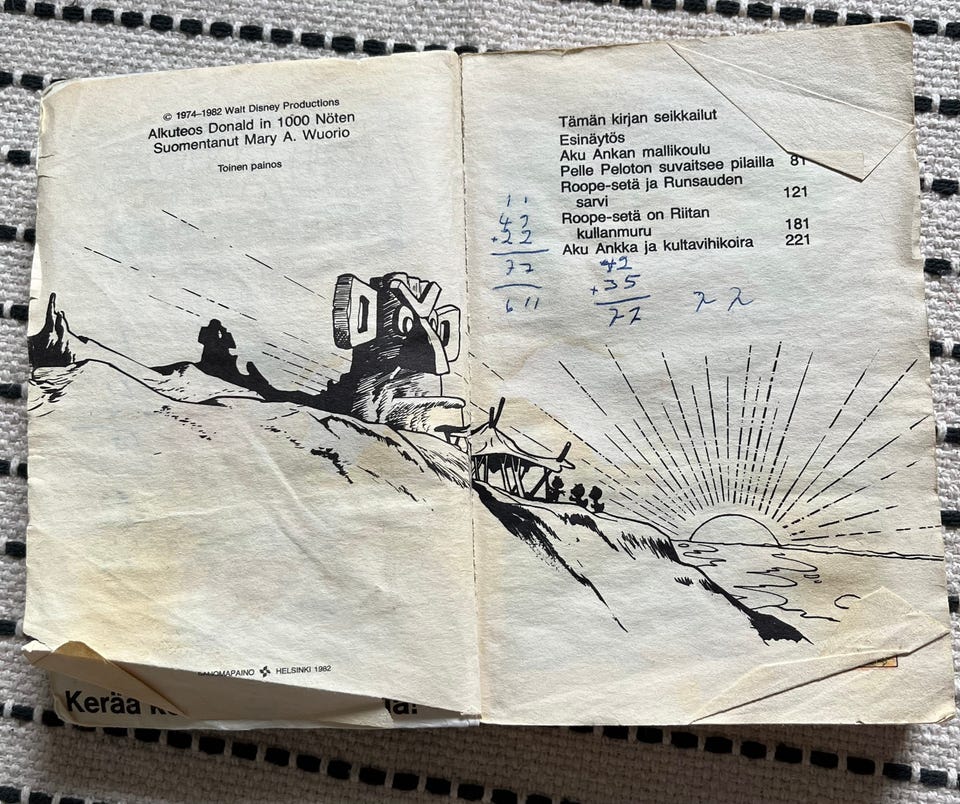 © 1974–1982 Walt Disney Productions
Alkuteos Donald in 1000 Nöten
Suomentanut Mary A. Wuorio
Toinen painos
SANOMAPAINO HELSINKI 1982
Kerää
Tämän kirjan seikkailut
Esinäytös
Aku Ankan mallikoulu
Pelle Peloton suvaitsee pilailla 81
Roope-setä ja Runsauden
sarvi 121
Roope-setä on Riitan
kullanmuru 181
Aku Ankka ja kultavihikoira 221
11
+22
77
611
42
+35
77
77